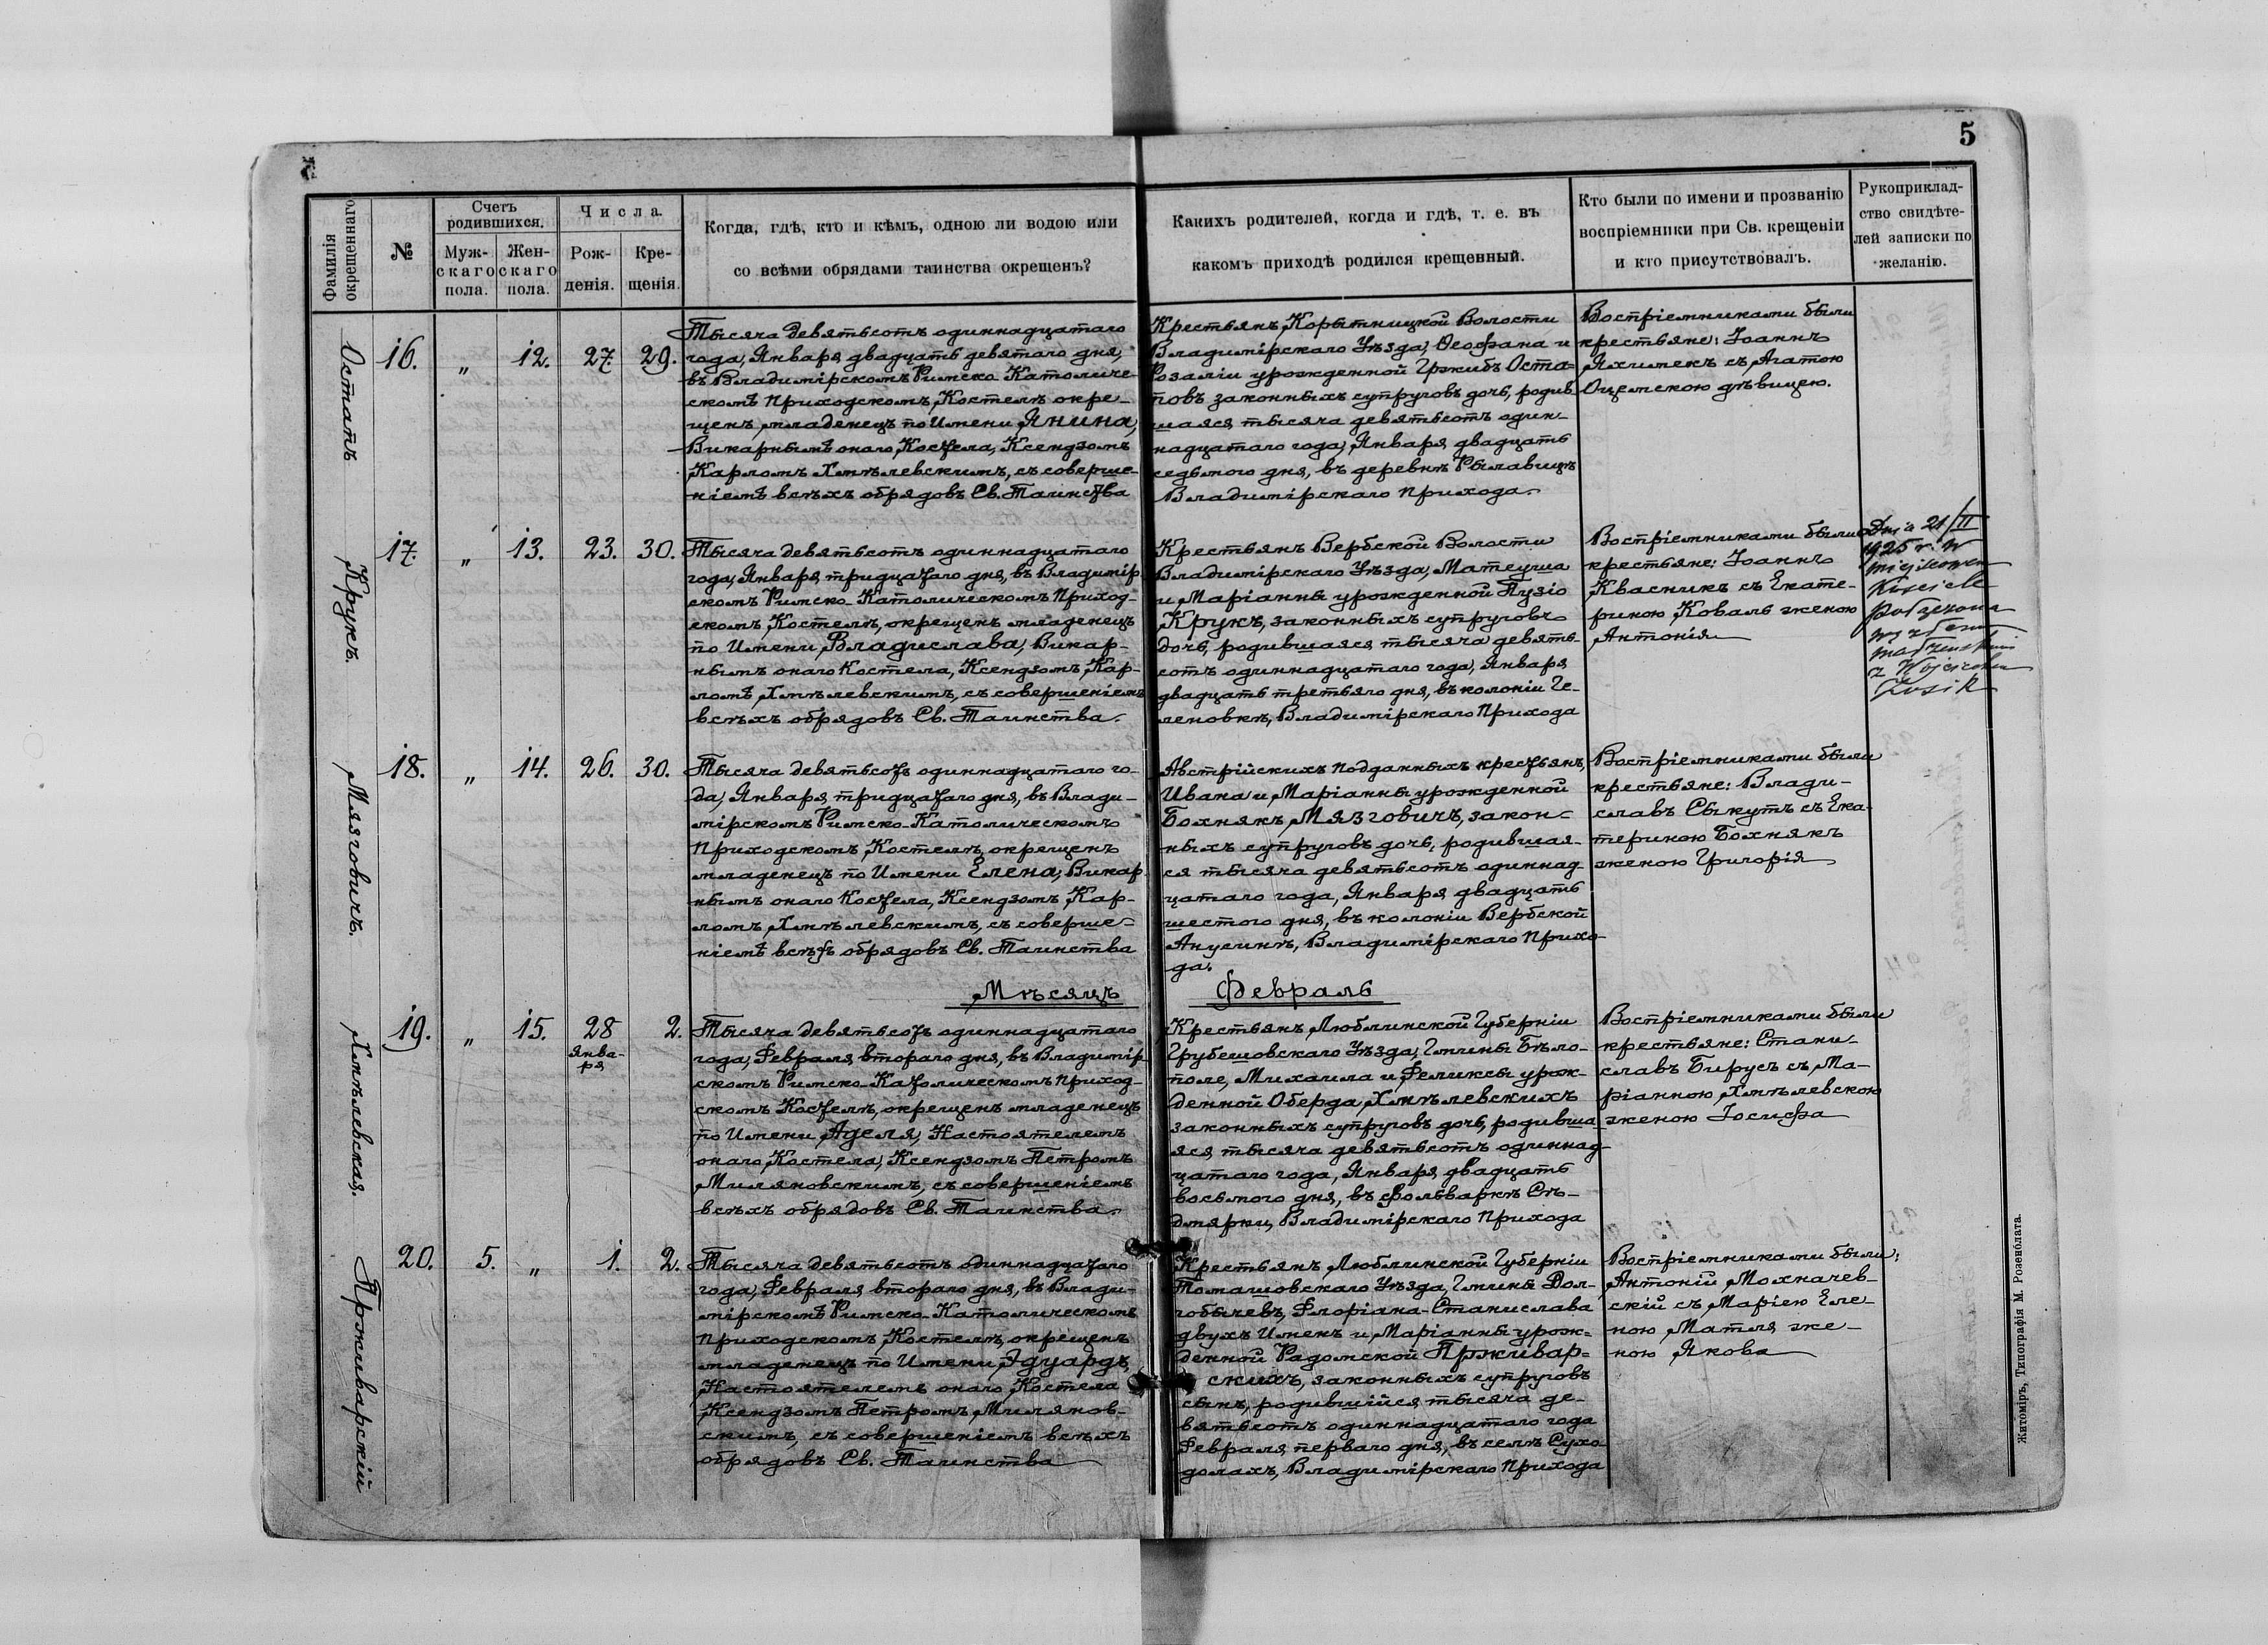 5
Фамилія окрещеннаго
№
Счетъ родившихся.
Мужскаго пола.
Женскаго пола.
Числа.
Рожденія.
Крещенія.
Когда, гдѣ, кто и кѣмъ, одною ли водою или
со всѣми обрядами таинства окрещенъ?
Какихъ родителей, когда и гдѣ, т. е. въ
какомъ приходѣ родился крещенный.
Кто были по имени и прозванію
воспріемники при Св. крещеніи
и кто присутствовалъ.
Рукоприклад-
ство свидѣте-
лей записки по
желанію.
Остапъ
16. „ 12. 27 29.
Тысяча девятьсотъ одиннадцатаго
года, Января двадцать девятаго дня,
въ Владимірскомъ Римско-Католиче-
скомъ Приходскомъ Костелѣ окре-
щенъ младенецъ по Имени Янина,
Викарнымъ онаго Костела, Ксендзомъ
Карломъ Хмѣлевскимъ, съ соверше-
ніемъ всѣхъ обрядовъ Св. Таинства
Крестьянъ Корытницкой Волости
Владимірскаго Уѣзда, Ѳеофана и
Розаліи урожденной Гржибъ Оста-
повъ законныхъ супруговъ дочь, родив-
шаяся тысяча девятьсотъ один-
надцатаго года, Января двадцать
седьмого дня, въ деревнѣ Рылавицѣ
Владимірскаго Прихода.
Воспріемниками были
крестьяне: Іоаннъ
Яхимекъ съ Агатою
Оцемскою дѣвицею.
Крукъ.
17. „ 13. 23. 30.
Тысяча девятьсотъ одиннадцатаго
года, Января тридцатаго дня, въ Владимір-
скомъ Римско-Католическомъ Приход-
скомъ Костелѣ, окрещенъ младенецъ
по Имени Владислава, Викар-
нымъ онаго Костела, Ксендзомъ Кар-
ломъ Хмѣлевскимъ, съ совершеніемъ
всѣхъ обрядовъ Св. Таинства.
Крестьянъ Вербской Волости
Владимірскаго Уѣзда, Матеуша
и Маріанны урожденной Пузіо
Крукъ, законныхъ супруговъ
дочь, родившаяся тысяча девять-
сотъ одиннадцатаго года, Января
двадцать третьяго дня, въ колоніи Ге-
леновкѣ, Владимірскаго Прихода
Воспріемниками были
крестьяне: Іоаннъ
Квасникъ съ Екате-
риною Коваль женою
Антонія
Dnia 21/II
1925 r. w
miejscowym
Kościele
z Wojciechem
Мязговичъ.
18. „ 14. 26. 30.
Тысяча девятьсотъ одиннадцатаго го-
да, Января тридцатаго дня, въ Влади-
мірскомъ Римско-Католическомъ
Приходскомъ Костелѣ, окрещенъ
младенецъ по Имени Елена, Викар-
нымъ онаго Костела, Ксендзомъ Кар-
ломъ Хмѣлевскимъ, съ соверше-
ніемъ всѣхъ обрядовъ Св. Таинства
Австрійскихъ подданныхъ крестьянъ,
Ивана и Маріанны урожденной
Бохнякъ Мязговичъ, закон-
ныхъ супруговъ дочь, родившая-
ся тысяча девятьсотъ одиннад-
цатаго года, Января двадцать
шестого дня, въ колоніи Вербской
Анусинѣ, Владимірскаго Прихо-
да.
Воспріемниками были
крестьяне: Влади-
славъ Сыкутъ съ Ека-
териною Бохнякъ
женою Григорія
Мѣсяцъ Февраль
Хмѣлевская.
19. „ 15. 28 Января 2.
Тысяча девятьсотъ одиннадцатаго
года, Февраля второго дня, въ Владимір-
скомъ Римско-Католическомъ Приход-
скомъ Костелѣ, окрещенъ младенецъ
по Имени Аделя, Настоятелемъ
онаго Костела, Ксендзомъ Петромъ
Миляновскимъ, съ совершеніемъ
всѣхъ обрядовъ Св. Таинства.
Крестьянъ Люблинской Губерніи
Грубешовскаго Уѣзда, Гмины Бѣло-
поле, Михаила и Феликсы урож-
денной Оберда Хмѣлевскихъ
законныхъ супруговъ дочь, родивша-
яся тысяча девятьсотъ одиннад-
цатаго года, Января двадцать
восьмого дня, въ фольваркѣ Сѣ-
дмярки, Владимірскаго Прихода
Воспріемниками были
крестьяне: Стани-
славъ Бирусъ съ Ма-
ріанною Хмѣлевскою
женою Іосифа
Прживарскій
20. 5. „ 1. 2.
Тысяча девятьсотъ одиннадцатаго
года, Февраля второго дня, въ Влади-
мірскомъ Римско-Католическомъ
Приходскомъ Костелѣ, окрещенъ
младенецъ по Имени Эдуардъ,
Настоятелемъ онаго Костела
Ксендзомъ Петромъ Милянов-
скимъ, съ совершеніемъ всѣхъ
обрядовъ Св. Таинства
Крестьянъ Люблинской Губерніи
Томашовскаго Уѣзда, Гмины Дол-
гобычевъ, Флоріана-Станислава
двухъ Именъ и Маріанны урож-
денной Радомской Прживар-
скихъ, законныхъ супруговъ
сынъ, родившійся тысяча де-
вятьсотъ одиннадцатаго года
Февраля перваго дня, въ селѣ Сухо-
долахъ, Владимірскаго Прихода
Воспріемниками были:
Антоній Мохначев-
скій съ Маріею Еле-
ною Матля же-
ною Якова
Житоміръ, Типографія М. Розенблата.